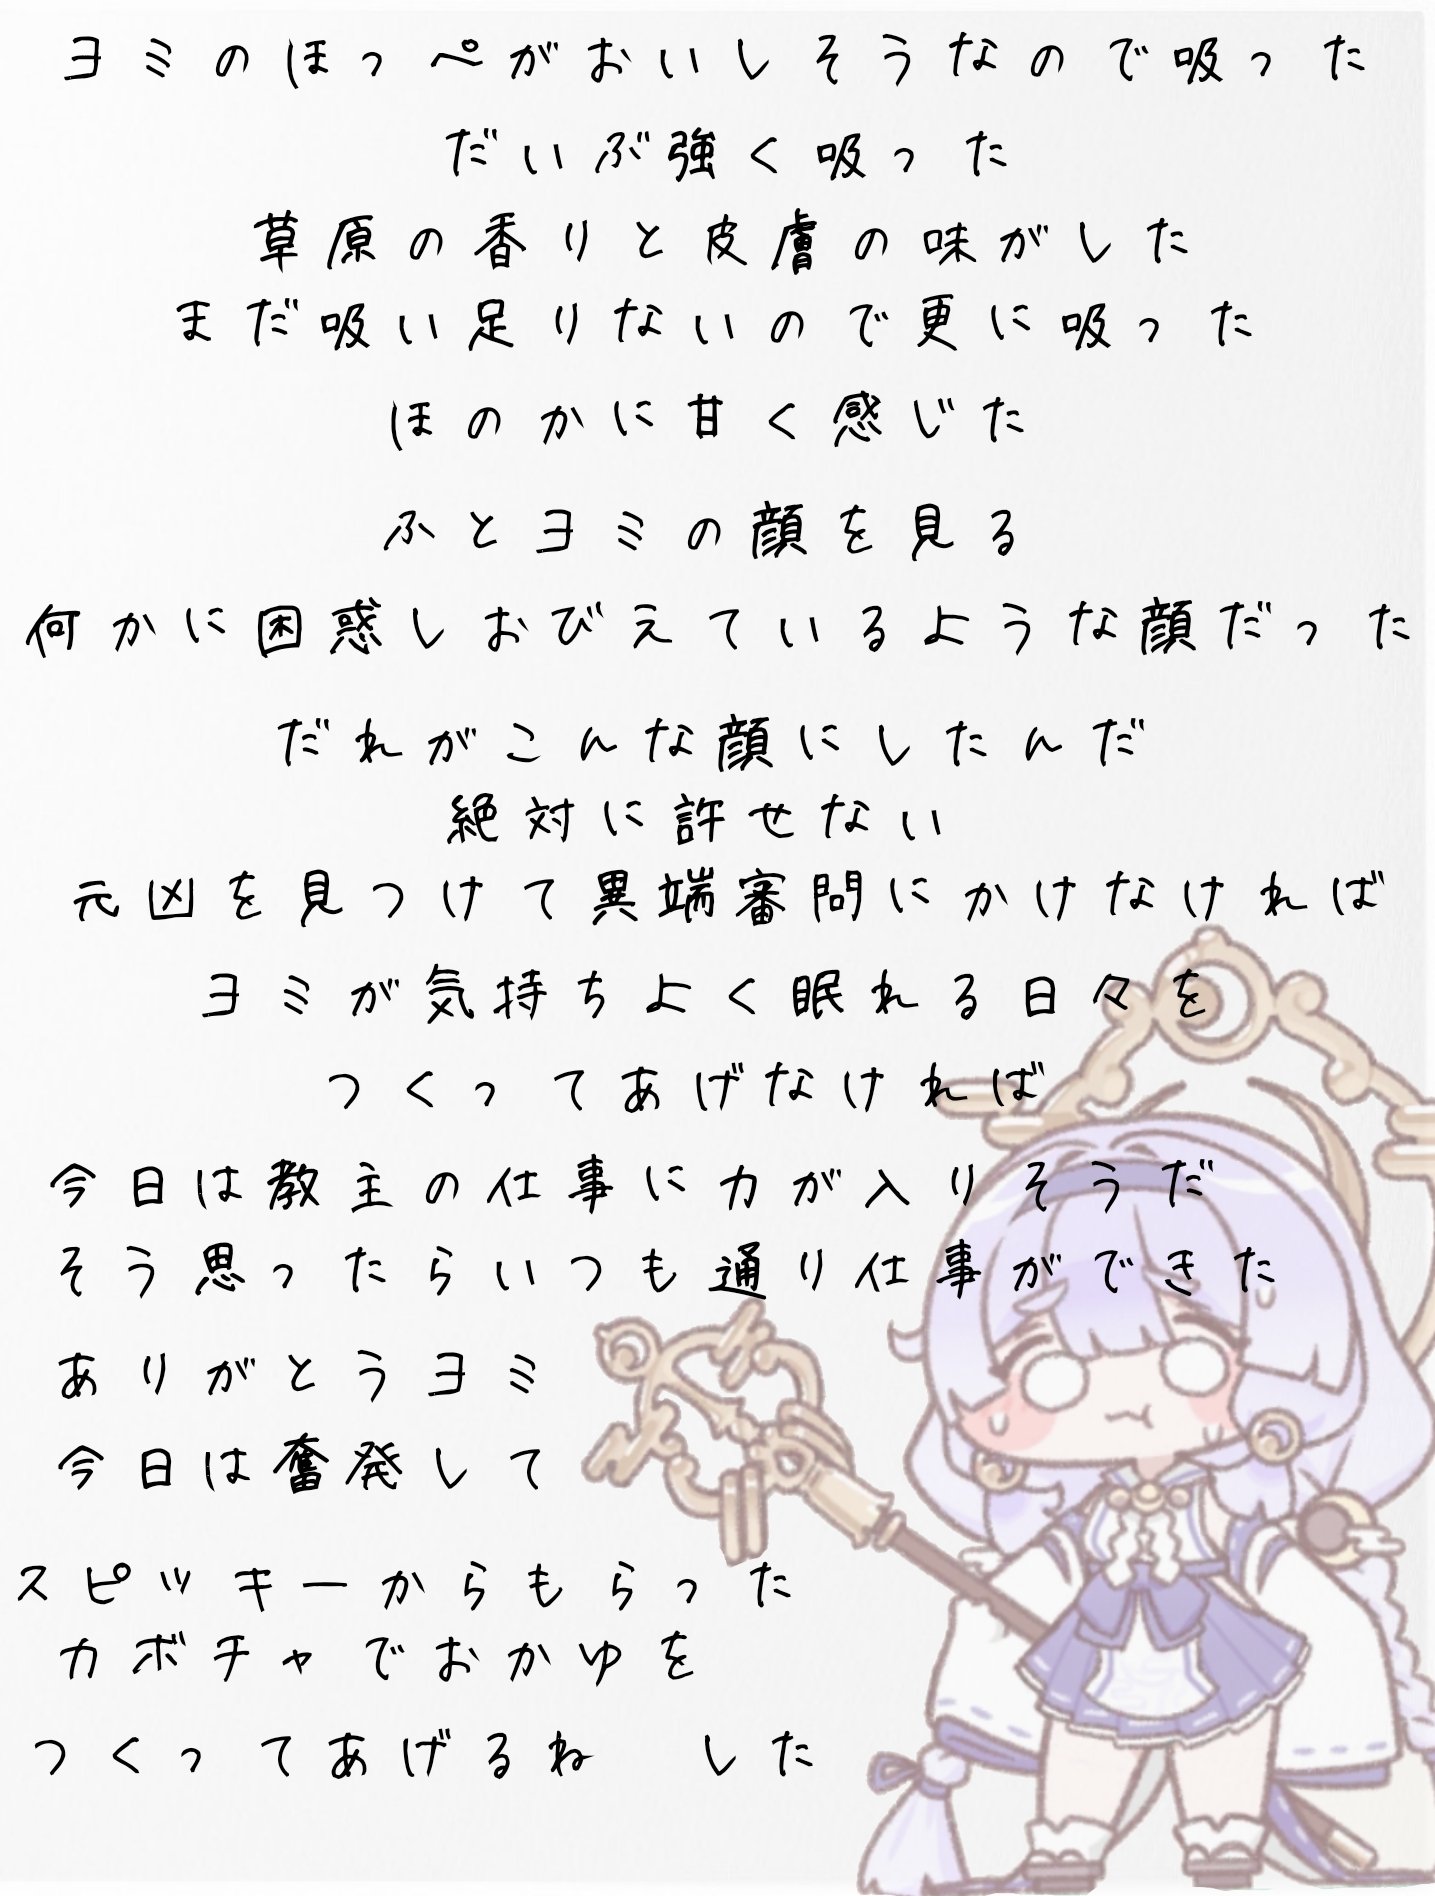 ヨミのほっぺがおいしそうなので吸った
だいぶ強く吸った
草原の香りと皮膚の味がした
まだ吸い足りないので更に吸った
ほのかに甘く感じた
ふとヨミの顔を見る
何かに困惑しおびえているような顔だった
だれがこんな顔にしたんだ
絶対に許せない
元凶を見つけて異端審問にかけなければ
ヨミが気持ちよく眠れる日々を
つくってあげなければ
今日は教主の仕事に力が入りそうだ
そう思ったらいつも通り仕事ができた
ありがとうヨミ
今日は奮発して
スピッキーからもらった
カボチャでおかゆを
つくってあげるね　した